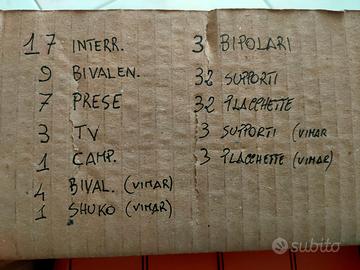 17 INTERR.
9 BIVALEN.
7 PRESE
3 TV
1 CAMP.
4 BIVAL. (VIMAR)
1 SHUKO (VIMAR)
3 BIPOLARI
32 SUPPORTI
32 PLACCHETTE
3 SUPPORTI (VIMAR
3 PLACCHETTE (VIMAR)
subito